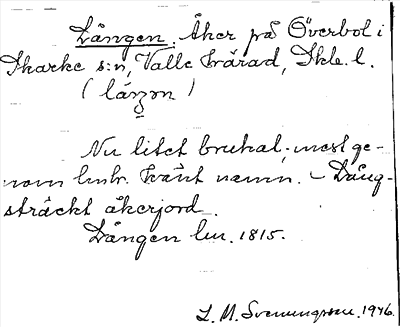 Längen. Åker på Överbol i
Skarke s:n, Valle härad, Skb. l.
(
)
Nu litet brukat, mest ge-
nom lmhr. känt namn. – Lång-
sträckt åkerjord.
Längen lm. 1815.
L. M. Svenungsson. 1946.